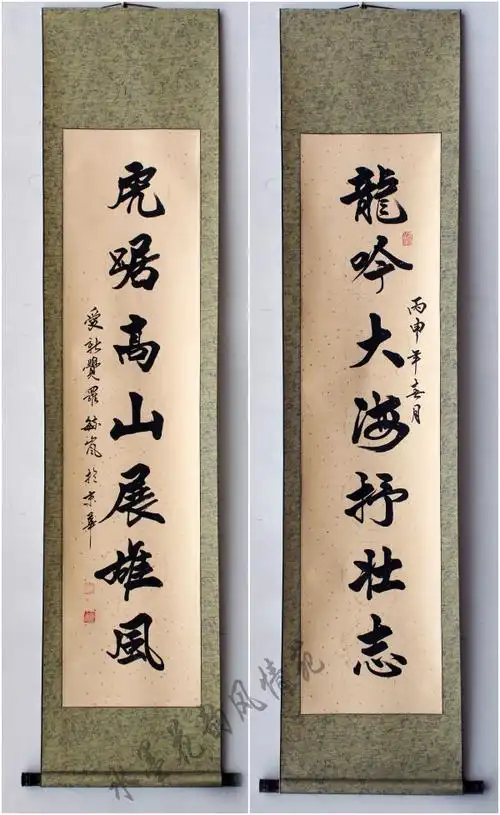 龍吟大海抒壮志
丙申年春月
虎踞高山展雄風
愛新覺羅毓嵐於京華
水墨花韵风情苑